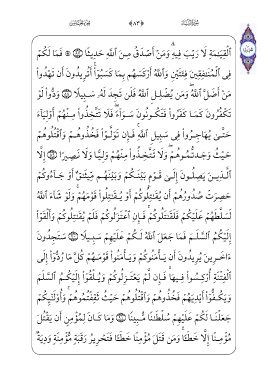 الْقِيَٰمَةِ لَا رَيْبَ فِيهِ ۗ وَمَنْ أَصْدَقُ مِنَ اللَّهِ حَدِيثًا ﴿٨٧﴾ ۞ فَمَا لَكُمْ
فِي الْمُنَٰفِقِينَ فِئَتَيْنِ وَاللَّهُ أَرْكَسَهُم بِمَا كَسَبُوٓا۟ ۚ أَتُرِيدُونَ أَن تَهْدُوا۟
مَنْ أَضَلَّ اللَّهُ ۖ وَمَن يُضْلِلِ اللَّهُ فَلَن تَجِدَ لَهُۥ سَبِيلًا ﴿٨٨﴾ وَدُّوا۟ لَوْ
تَكْفُرُونَ كَمَا كَفَرُوا۟ فَتَكُونُونَ سَوَآءً ۖ فَلَا تَتَّخِذُوا۟ مِنْهُمْ أَوْلِيَآءَ
حَتَّىٰ يُهَاجِرُوا۟ فِي سَبِيلِ اللَّهِ ۚ فَإِن تَوَلَّوْا۟ فَخُذُوهُمْ وَاقْتُلُوهُمْ
حَيْثُ وَجَدتُّمُوهُمْ ۖ وَلَا تَتَّخِذُوا۟ مِنْهُمْ وَلِيًّا وَلَا نَصِيرًا ﴿٨٩﴾ إِلَّا
الَّذِينَ يَصِلُونَ إِلَىٰ قَوْمٍۭ بَيْنَكُمْ وَبَيْنَهُم مِّيثَٰقٌ أَوْ جَآءُوكُمْ
حَصِرَتْ صُدُورُهُمْ أَن يُقَٰتِلُوكُمْ أَوْ يُقَٰتِلُوا۟ قَوْمَهُمْ ۚ وَلَوْ شَآءَ اللَّهُ
لَسَلَّطَهُمْ عَلَيْكُمْ فَلَقَٰتَلُوكُمْ ۚ فَإِنِ اعْتَزَلُوكُمْ فَلَمْ يُقَٰتِلُوكُمْ وَأَلْقَوْا۟
إِلَيْكُمُ السَّلَمَ فَمَا جَعَلَ اللَّهُ لَكُمْ عَلَيْهِمْ سَبِيلًا ﴿٩٠﴾ سَتَجِدُونَ
ءَاخَرِينَ يُرِيدُونَ أَن يَأْمَنُوكُمْ وَيَأْمَنُوا۟ قَوْمَهُمْ كُلَّ مَا رُدُّوٓا۟ إِلَى
الْفِتْنَةِ أُرْكِسُوا۟ فِيهَا ۚ فَإِن لَّمْ يَعْتَزِلُوكُمْ وَيُلْقُوٓا۟ إِلَيْكُمُ السَّلَمَ
وَيَكُفُّوٓا۟ أَيْدِيَهُمْ فَخُذُوهُمْ وَاقْتُلُوهُمْ حَيْثُ ثَقِفْتُمُوهُمْ ۚ وَأُو۟لَٰٓئِكُمْ
جَعَلْنَا لَكُمْ عَلَيْهِمْ سُلْطَٰنًا مُّبِينًا ﴿٩١﴾ وَمَا كَانَ لِمُؤْمِنٍ أَن يَقْتُلَ
مُؤْمِنًا إِلَّا خَطَـًٔا ۚ وَمَن قَتَلَ مُؤْمِنًا خَطَـًٔا فَتَحْرِيرُ رَقَبَةٍ مُّؤْمِنَةٍ وَدِيَةٌ